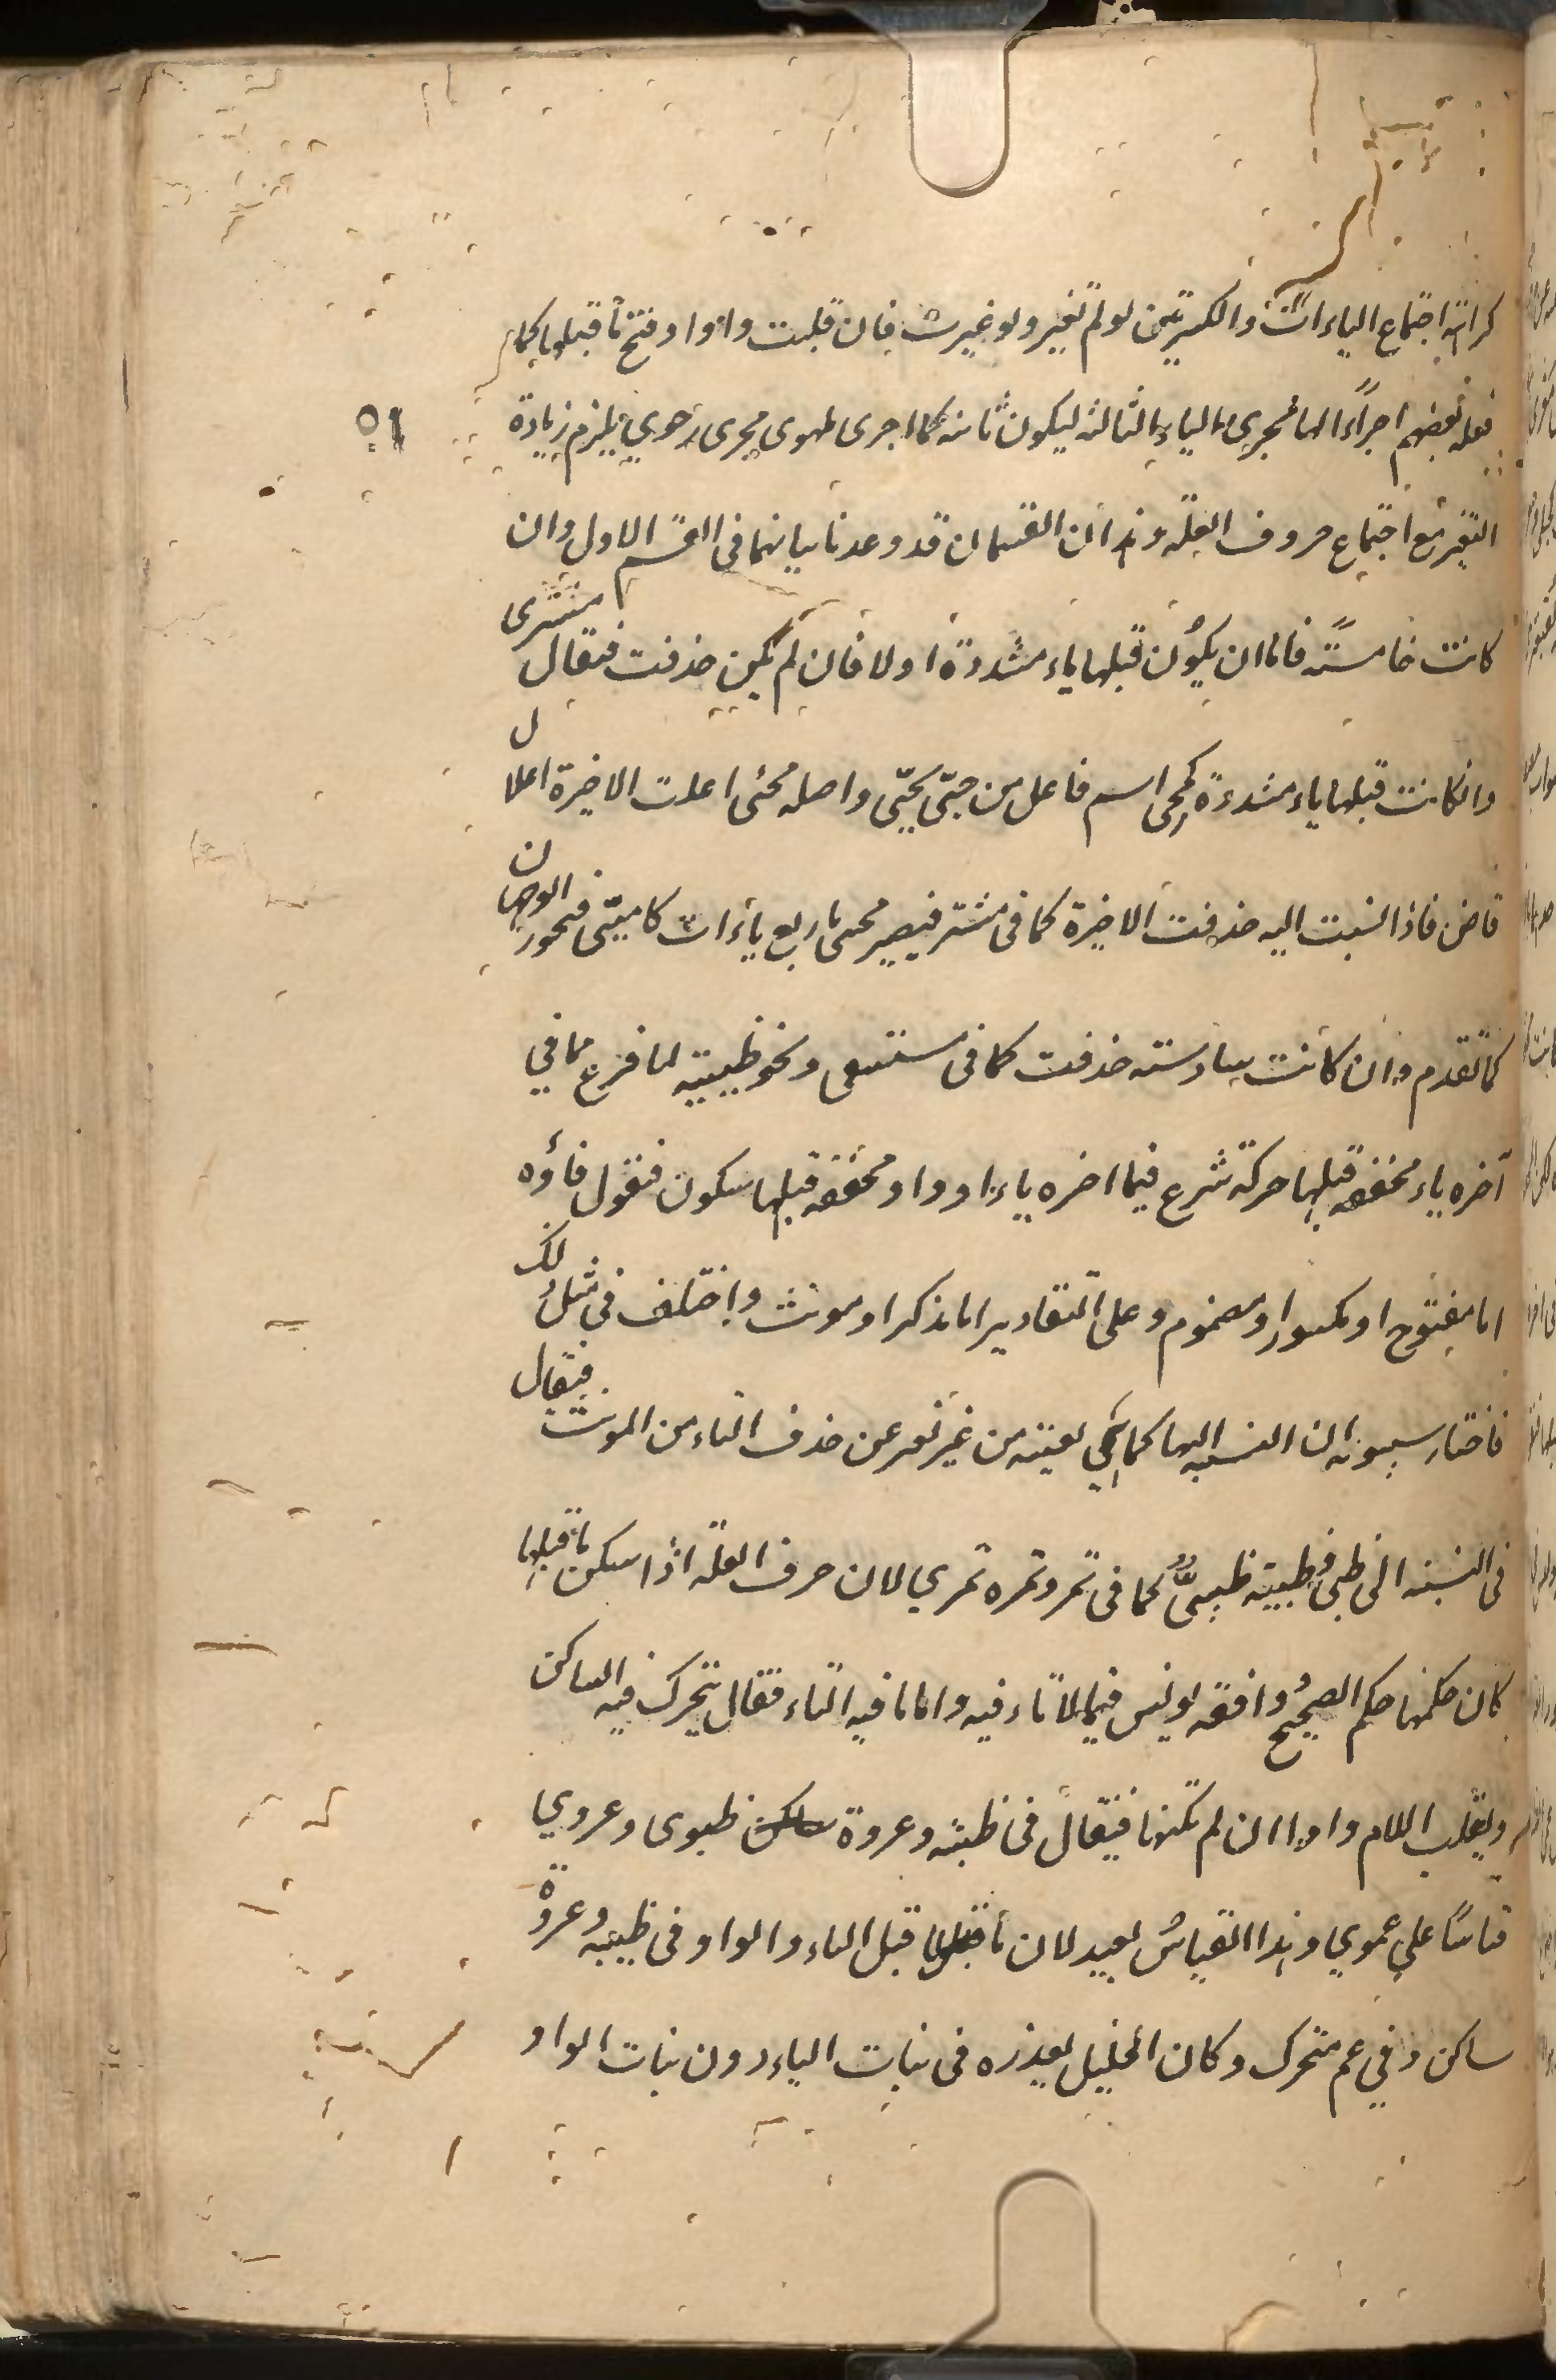 كراهة اجتماع الياءات والكسرتين لو لم تغير ولو غيرت فان قلبت واوا وفتح ما قبلها كما
فعله بعضهم اجراءً لها مجرى الياء الثالثه ليكون ثانيه كما اجرى طهوى مجرى رحوي يلزم زيادة
٥٩
التغير مع اجتماع حروف العلة وهذان القسمان قد وعدنا بيانهما فى القسم الاول وان
كانت خامسة فاما ان يكون قبلها ياء مشددة اولا فان لم يكن حذفت فيقال مشترى
وان كانت قبلها ياء مشددة كمحى اسم فاعل من حيّى يحيّى واصله محيّى اعلت الاخيرة اعلال
قاض فاذا نسبت اليه حذفت الاخيرة كما فى مشتر فيصير محيى باربع ياءات كاميّى فيجوز الوجهان
كما تقدم وان كانت سادسته حذفت كما فى مستسقى ونحو ظبيية لما فرغ مما في
آخره ياء مخففه قبلها حركة شرع فيما اخره ياء او واو مخففه قبلها سكون فنقول فاؤه
اما مفتوح او مكسور او مضموم وعلى التقادير اما مذكر او مونث واختلف فى مثل ذلك
فاختار سيبويه ان النسبه اليها كما هي بعينه من غير تغير عن حذف التاء من المونث فيقال
فى النسبه الى ظبى وظبية ظبيىٌّ كما فى تمر وتمره تمري لان حرف العلة اذا سكن ما قبلها
كان حكمها حكم الصحيح وافقه يونس فيما لا تاء فيه واما ما فيه التاء فقال يتحرك فيه الساكن
ويقلب اللام واوا ان لم تكنها فيقال فى ظبيه وعروة ظبوى وعروي
قياسًا علي عموي وهذا القياس بعيد لان ما قبل الياء والواو فى ظبيه وعروة
ساكن وفي عم متحرك وكان الخليل يعذره فى بنات الياء دون بنات الواو